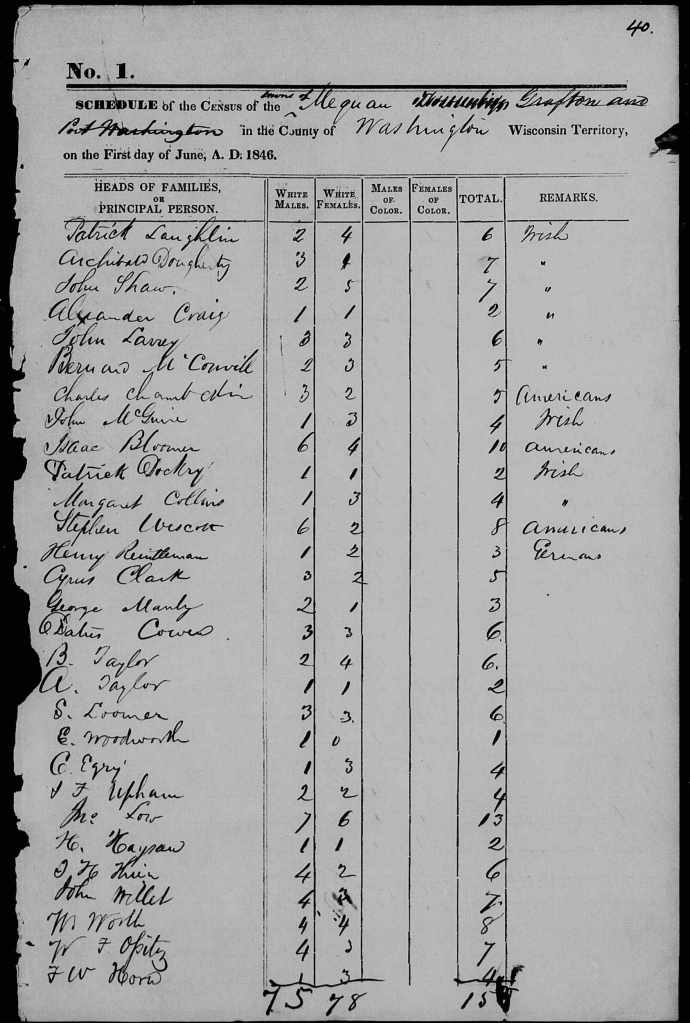 40.
No. 1.
towns of
SCHEDULE of the CENSUS of the Mequon Grafton and
Port Washington in the County of Washington Wisconsin Territory,
on the First day of June, A. D. 1846.
HEADS OF FAMILIES, OR PRINCIPAL PERSON. WHITE MALES. WHITE FEMALES. MALES OF COLOR. FEMALES OF COLOR. TOTAL. REMARKS.
Patrick Laughlin 2 4 6 Irish
Archibald Dougherty 3 4 7 "
John Shaw. 2 5 7 "
Alexander Craig 1 1 2 "
John Lavey 3 3 6 "
Bernard McConvill 2 3 5 "
Charles 3 2 5 Americans
John McGuire 1 3 4 Irish
Isaac Bloomer 6 4 10 Americans
Patrick Dockry 1 1 2 Irish
Margaret Collins 1 3 4 "
Stephen Wescott 6 2 8 Americans
Henry Reintleman 1 2 3 Germans
Cyrus Clark 3 2 5
George Manly 2 1 3
3 3 6
B. Taylor 2 4 6.
A. Taylor 1 1 2
S. Loomer 3 3 6
E. Woodworth 1 0 1
C. Egry 1 3 4
I F Upham 2 2 4
Jno Low 7 6 13
H. Haysaw 1 1 2
I H 4 2 6
John Willet 4 3 7
Wm Worth 4 4 8
W F Opitz 4 3 7
F W Horn 1 3 4
75 78 15